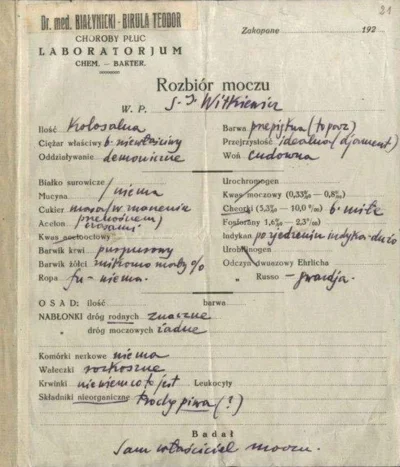 21
Dr. med. BIAŁYNICKI - BIRULA TEODOR
CHOROBY PŁUC
LABORATORJUM
CHEM. — BAKTER.
Zakopane 192
Rozbiór moczu
W. P. S. I. Witkiewicz
Ilość Kolosalna
Ciężar właściwy b. niewłaściwy
Oddziaływanie demoniczne
Barwa przepiękna (topaz)
Przejrzystość idealna (djament)
Woń cudowna
Białko surowicze
Mucyna niema
Cukier masa (w marzeniu
Aceton
Kwas acetooctowy
Barwik krwi purpurowy
Barwik żółci mały %
Ropa fu - niema.
Urochromogen
Kwas moczowy (0,33‰ — 0,8‰)
Chlorki (5,3‰ — 10,0‰) b. miłe
Fosforany 1,6‰ — 2,3‰)
Indykan po zjedzeniu indyka - dużo
Urobilinogen
Odczyn dwuazowy Ehrlicha
„ Russo — gwardja.
OSAD: ilość barwa
NABŁONKI dróg rodnych znaczne
„ dróg moczowych żadne
Komórki nerkowe niema
Wałeczki rozkoszne
Krwinki niewiem co to jest Leukocyty
Składniki nieorganiczne trochę piwa (?)
Badał
Sam właściciel moczu.